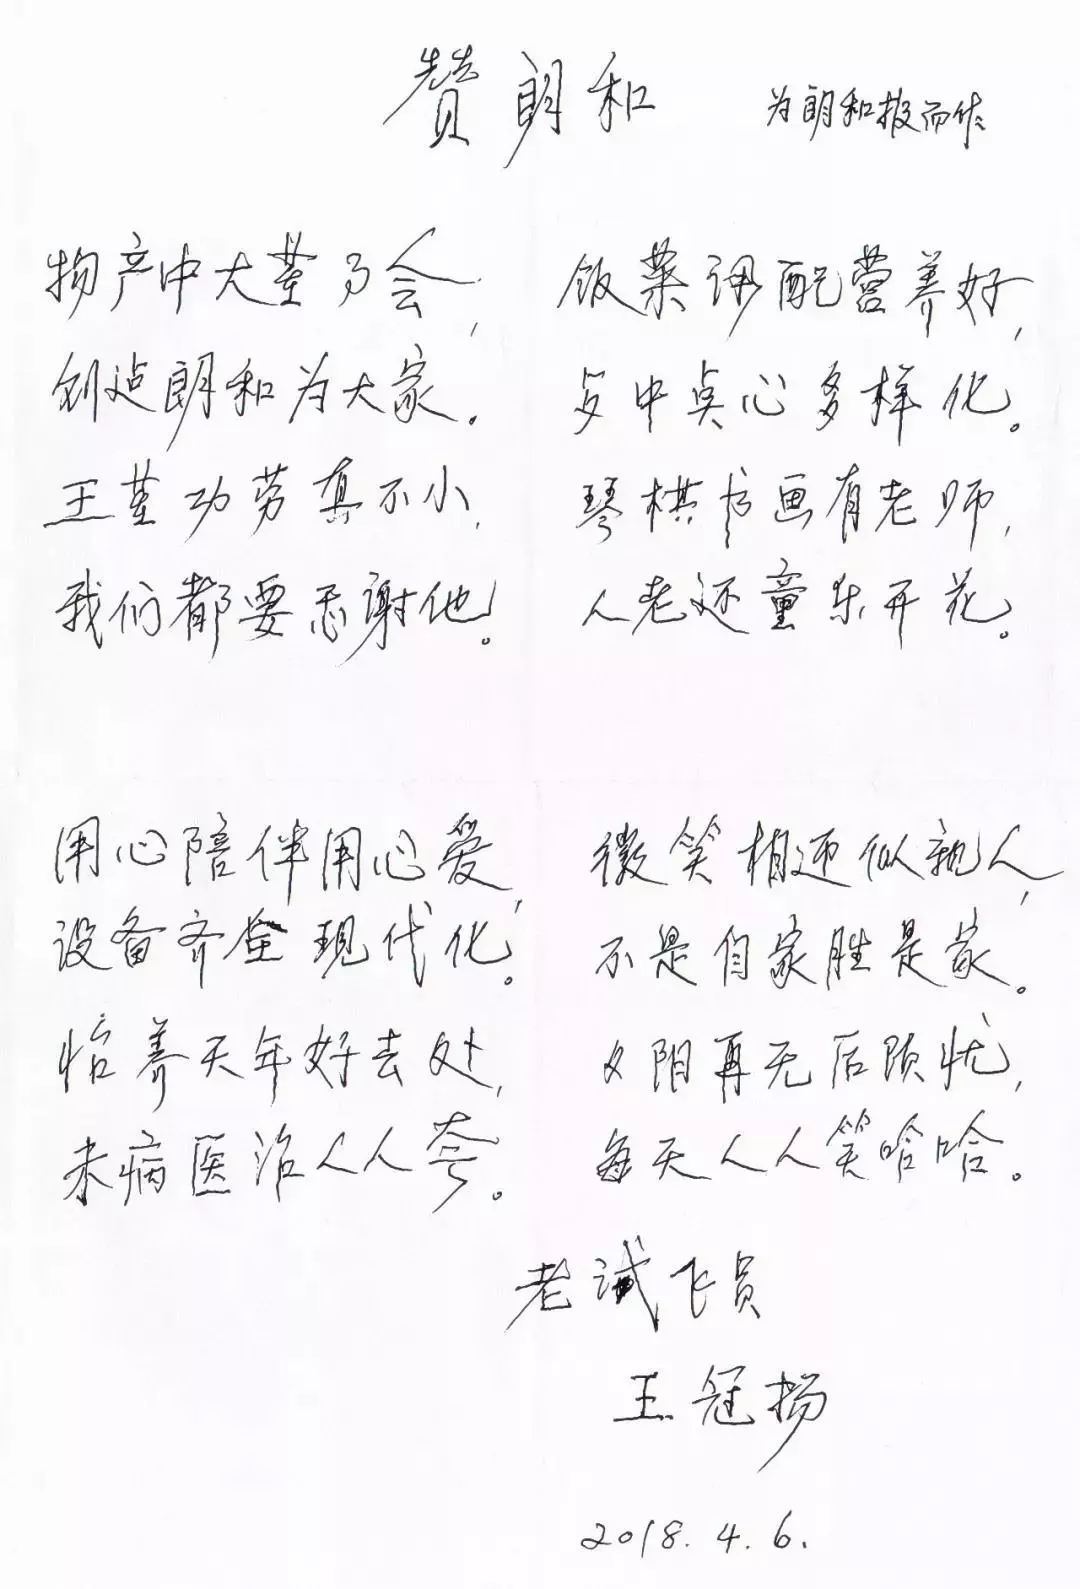 赞朗和
为朗和报而作
物产中大董事会,
创造朗和为大家。
王董功劳真不小,
我们都要感谢他。
饭菜调配营养好,
歺中点心多样化。
琴棋书画有老师,
人老还童乐开花。
用心陪伴用心爱,
设备齐全现代化。
怡养天年好去处,
未病医治人人夸。
微笑相迎似亲人,
不是自家胜是家。
夕阳再无后顾忧,
每天人人笑哈哈。
老试飞员
王冠扬
2018.4.6.